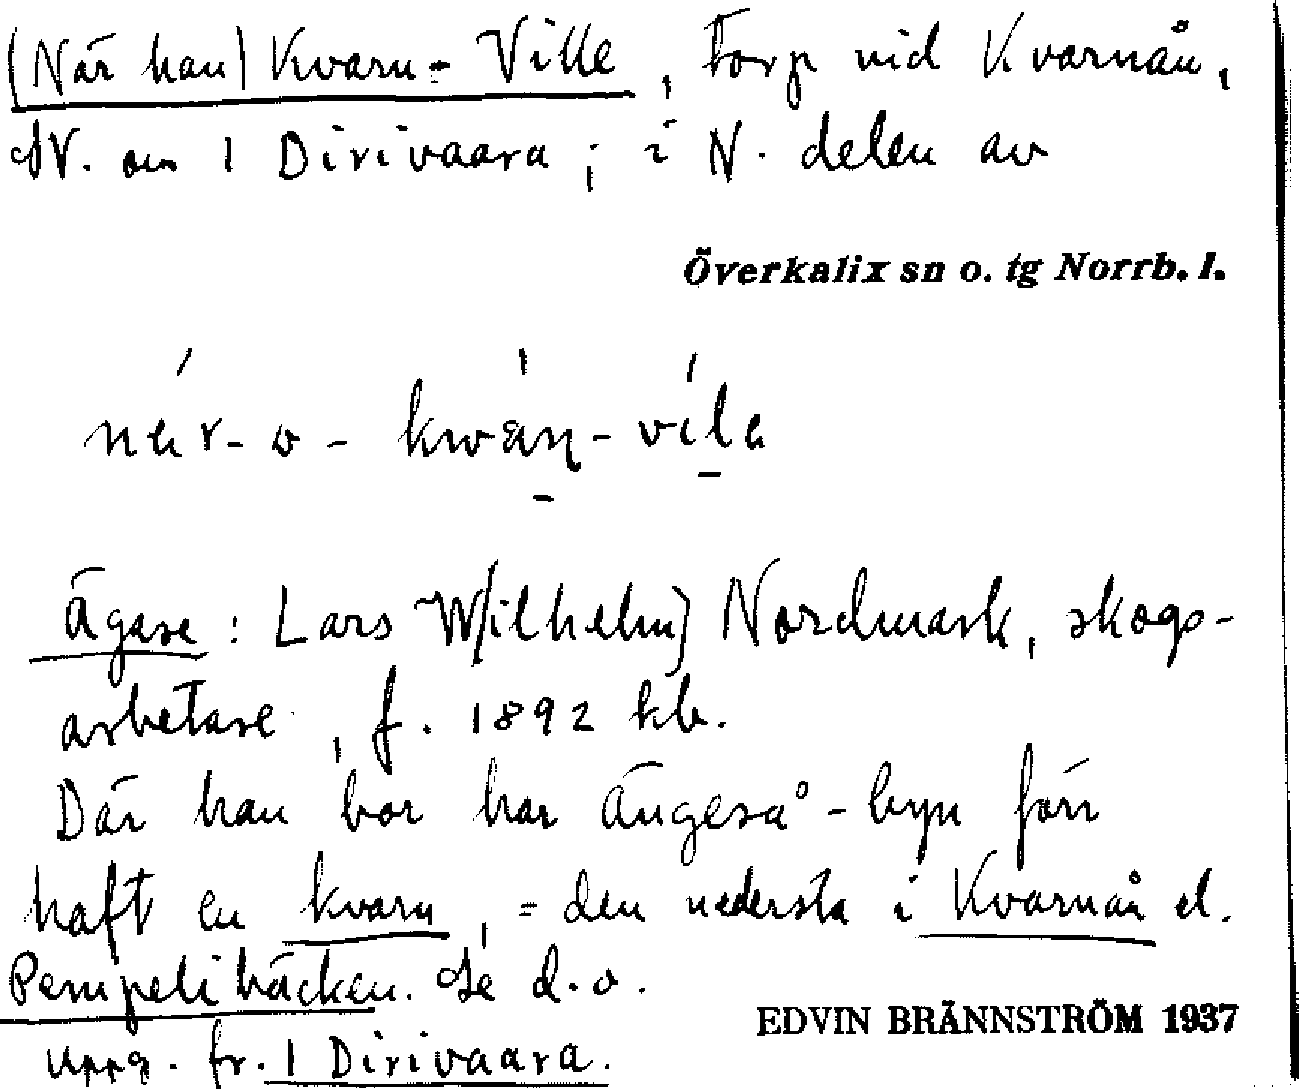 (När han) Kvarn-Ville, Torp vid Kvarnån,
NV. om 1 Dirivaara; i N. delen av
Överkalix sn o. tg Norrb. l.
Ägare: Lars W[ilhelm] Nordmark, skogs-
arbetare, f. 1892 hb.
Där han bor har Ängeså-byn förr
haft en kvarn, = den nedersta i Kvarnån el.
Pempelibäcken. Se d.o.
Uppg. fr. 1 Dirivaara.
EDVIN BRÄNNSTRÖM 1937